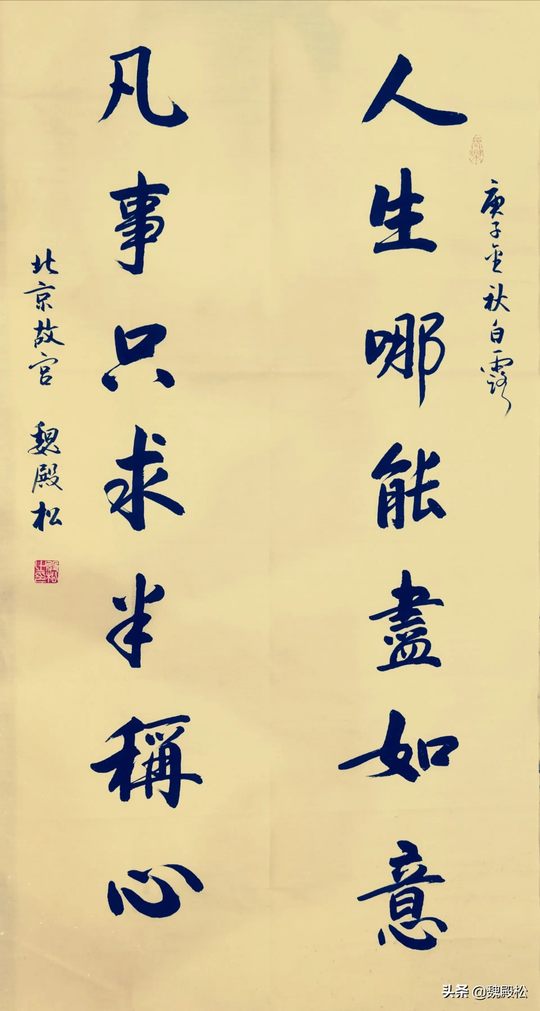 庚子金秋白露
人生哪能盡如意
凡事只求半稱心
北京故宫 魏殿松
头条 @魏殿松